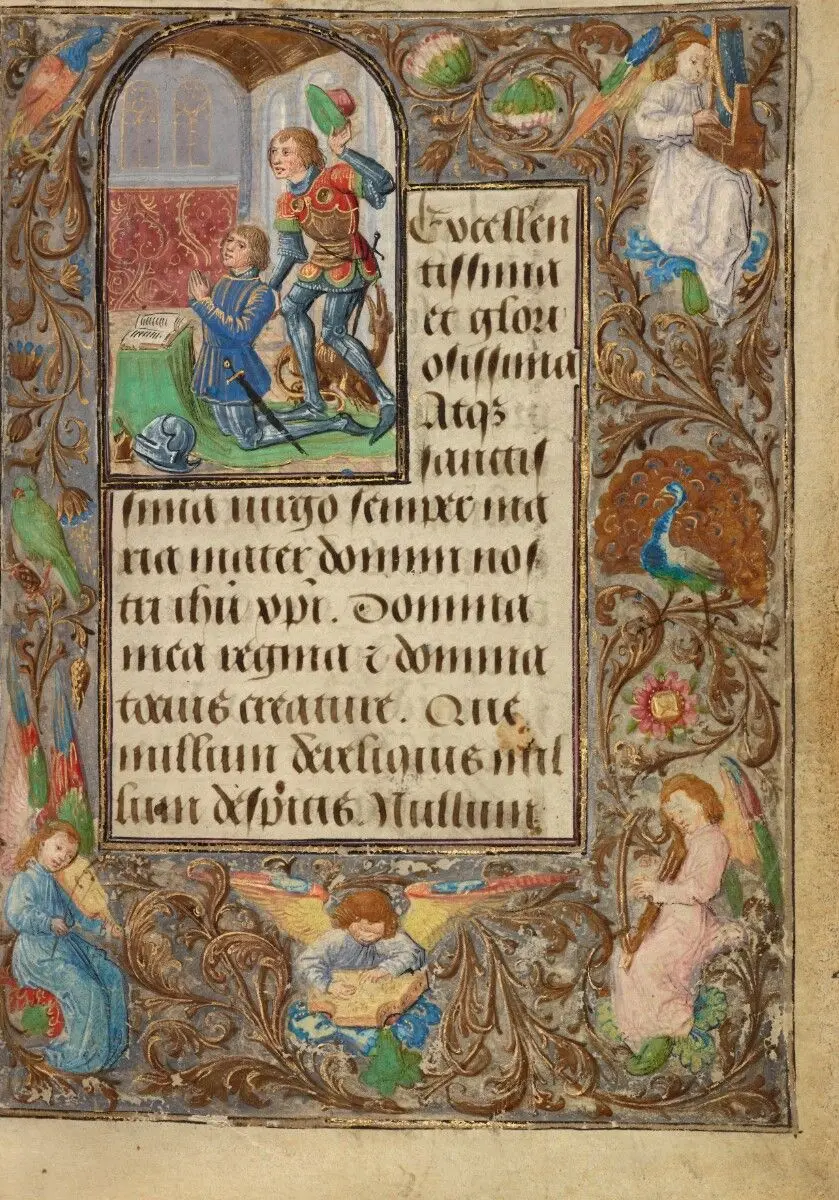 Excellen
tissima
et glori
osissima
Atq3
sanctis
sima uirgo semper ma
ria mater domini nos
tri ihũ xpĩ. Domina
mea regina ⁊ domina
tocius creature. Que
nullum dereliquis nul
lum despicis. Nullum